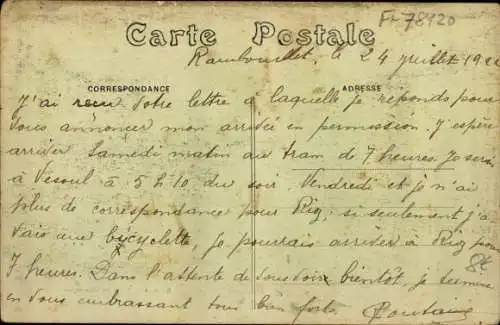 F-78120
Carte Postale
Rambouillet, le 24 juillet 19
CORRESPONDANCE
ADRESSE
J'ai recu votre lettre à laquelle je réponds pour
vous annoncer mon arrivée en permission. J'espère
arriver Samedi matin au tram de 7 heures. Je serai
à Vesoul à 5 h 10 du soir Vendredi et je n'ai
plus de correspondance pour Rig, si seulement j'a
vais une bicyclette, je pourrais arriver à Rig pour
7 heures. Dans l'attente de vous voir bientôt, je termine
en vous embrassant tous bien fort.
8t